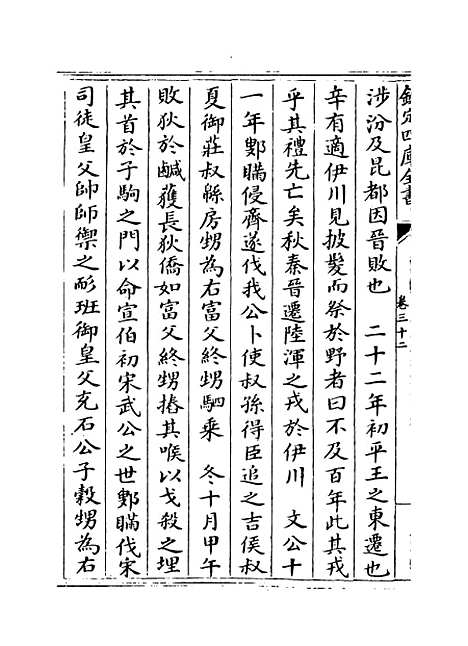 欽定四庫全書
卷三十二
涉汾及昆都因晉敗也　二十二年初平王之東遷也
辛有適伊川見披髮而祭於野者曰不及百年此其戎
乎其禮先亡矣秋秦晉遷陸渾之戎於伊川　文公十
一年鄋瞞侵齊遂伐我公卜使叔孫得臣追之吉侯叔
夏御莊叔緜房甥為右富父終甥駟乘　冬十月甲午
敗狄於鹹獲長狄僑如富父終甥摏其喉以戈殺之埋
其首於子駒之門以命宣伯初宋武公之世鄋瞞伐宋
司徒皇父帥師禦之耏班御皇父充石公子穀甥為右